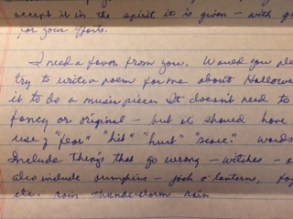 accept it in the spirit it is given – with g
for your efforts.
I need a favor from you. Would you ple
try to write a poem for me about Hallowe
it to be a music piece. It doesn't need to
fancy or original – but it should have
use of "fear" "hit" "hurt" "scare" words
Include things that go wrong – witches – a
also include pumpkins – jack o lantern,
etc. rain thunderstorm rain